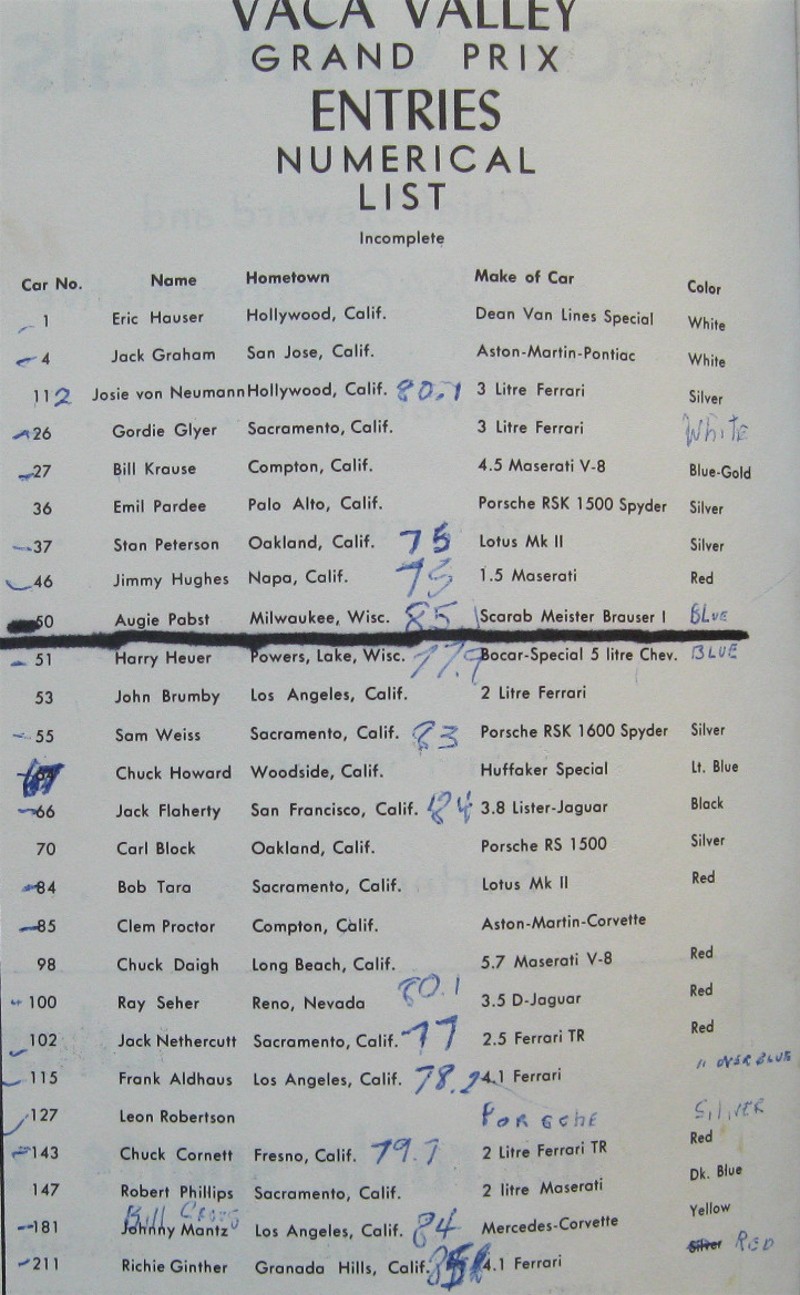 VACA VALLEY
GRAND PRIX
ENTRIES
NUMERICAL
LIST
Incomplete
Car No. Name Hometown Make of Car Color
1 Eric Hauser Hollywood, Calif. Dean Van Lines Special White
4 Jack Graham San Jose, Calif. Aston-Martin-Pontiac White
112 Josie von Neumann Hollywood, Calif. 80.1 3 Litre Ferrari Silver
26 Gordie Glyer Sacramento, Calif. 3 Litre Ferrari White
27 Bill Krause Compton, Calif. 4.5 Maserati V-8 Blue-Gold
36 Emil Pardee Palo Alto, Calif. Porsche RSK 1500 Spyder Silver
37 Stan Peterson Oakland, Calif. 75 Lotus Mk II Silver
46 Jimmy Hughes Napa, Calif. 75 1.5 Maserati Red
50 Augie Pabst Milwaukee, Wisc. 85 Scarab Meister Brauser I BLUE
51 Harry Heuer Powers, Lake, Wisc. 77.9 Bocar-Special 5 litre Chev. BLUE
53 John Brumby Los Angeles, Calif. 2 Litre Ferrari
55 Sam Weiss Sacramento, Calif. 83 Porsche RSK 1600 Spyder Silver
Chuck Howard Woodside, Calif. Huffaker Special Lt. Blue
66 Jack Flaherty San Francisco, Calif. 84 3.8 Lister-Jaguar Black
70 Carl Block Oakland, Calif. Porsche RS 1500 Silver
84 Bob Tara Sacramento, Calif. Lotus Mk II Red
85 Clem Proctor Compton, Calif. Aston-Martin-Corvette
98 Chuck Daigh Long Beach, Calif. 5.7 Maserati V-8 Red
100 Ray Seher Reno, Nevada 80.1 3.5 D-Jaguar Red
102 Jack Nethercutt Sacramento, Calif. 77 2.5 Ferrari TR Red
115 Frank Aldhaus Los Angeles, Calif. 78.2 4.1 Ferrari " OVER BLUE
127 Leon Robertson PORSCHE SILVER
143 Chuck Cornett Fresno, Calif. 79.7 2 Litre Ferrari TR Red
147 Robert Phillips Sacramento, Calif. 2 litre Maserati Dk. Blue
Bill
181 Johnny Mantz Los Angeles, Calif. 84 Mercedes-Corvette Yellow
211 Richie Ginther Granada Hills, Calif. 4.1 Ferrari Silver RED